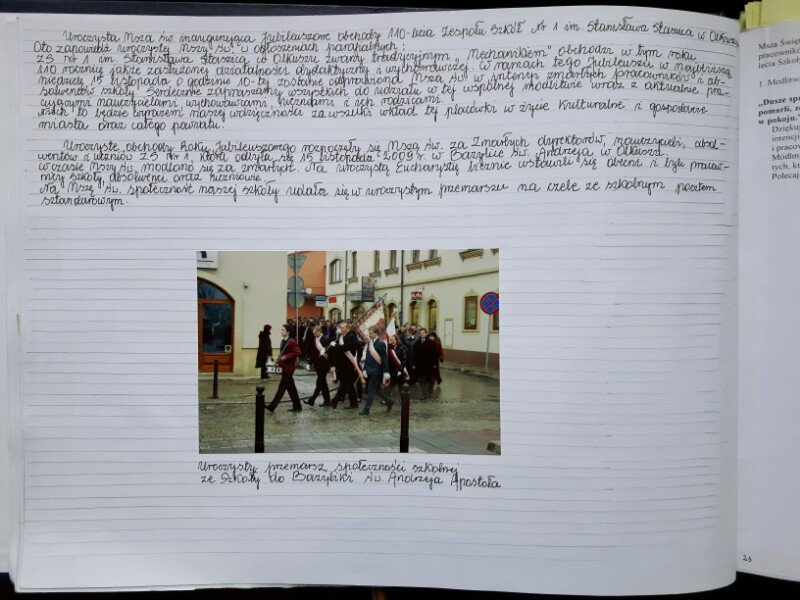 Uroczysta Msza Św. inaugurująca Jubileuszowe obchody 110-lecia Zespołu Szkół Nr 1 im. Stanisława Staszica w Olkuszu
Oto zapowiedź uroczystej Mszy Św. w ogłoszeniach parafialnych:
ZS Nr 1 im. Stanisława Staszica w Olkuszu zwany tradycyjnym „Mechanikiem" obchodzi w tym roku
110 rocznicę jakże zasłużonej działalności dydaktycznej i wychowawczej. W ramach tego Jubileuszu w najbliższą
niedzielę 15 listopada o godzinie 10-tej zostanie odprawiona Msza Św. w intencji zmarłych pracowników i ab-
solwentów szkoły. Serdecznie zapraszamy wszystkich do udziału w tej wspólnej modlitwie wraz z aktualnie pra-
cującymi nauczycielami, wychowawcami, uczniami i ich rodzicami.
Niech to będzie wyrazem naszej wdzięczności za wielki wkład tej placówki w życie kulturalne i gospodarcze
miasta oraz całego powiatu.
Uroczyste obchody Roku Jubileuszowego rozpoczęły się Mszą Św. za zmarłych dyrektorów, nauczycieli, absol-
wentów i uczniów ZS Nr 1, która odbyła się 15 listopada 2009 r. w Bazylice Św. Andrzeja w Olkuszu
W czasie Mszy Św. modlono się za zmarłych. Na uroczystą Eucharystię licznie wstawili się obecni i byli pracow-
nicy szkoły, absolwenci oraz uczniowie.
Na Mszę Św. społeczność naszej szkoły udała się w uroczystym przemarszu na czele ze szkolnym pocztem
sztandarowym.
Uroczysty przemarsz społeczności szkolnej
ze Szkoły do Bazyliki Św. Andrzeja Apostoła
Msza Święt
pracownikó
lecia Szkoły
1 Modlitw
„Dusze spr
pomarli, z
w pokoju.
Dzięku
intencji
i praco
Módlm
tych, k
Polecaj
23